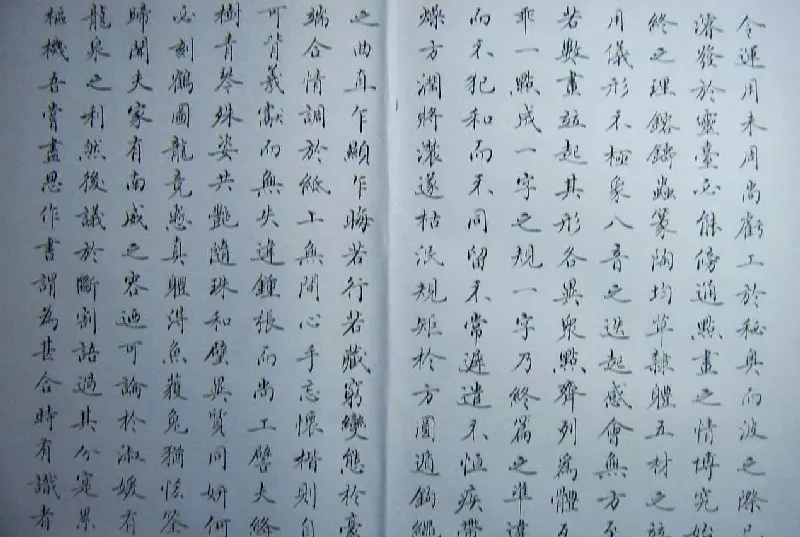 令運用未周尚虧工於秘奧而波之際已
濬發於靈臺必能傍通點畫之情博究始
終之理鎔鑄蟲篆陶均草隸體五材之竝
用儀形不極象八音之迭起感會無方至
若數畫竝起其形各異眾點齊列為體互
乖一點成一字之規一字乃終篇之準違
而不犯和而不同留不常遲遣不恒疾帶
燥方潤將濃遂枯泯規矩於方圓遁鉤繩
之曲直乍顯乍晦若行若藏窮變態於豪
端合情調於紙上無間心手忘懷楷則自
可背羲獻而無失違鍾張而尚工譬夫絳
樹青琴殊姿共艷隨珠和璧異質同妍何
必刻鶴圖龍竟慚真體得魚獲兔猶恡筌
蹄聞夫家有南威之容迺可論於淑媛有
龍泉之利然後議於斷割語過其分實累
樞機吾嘗盡思作書謂為甚合時有識者